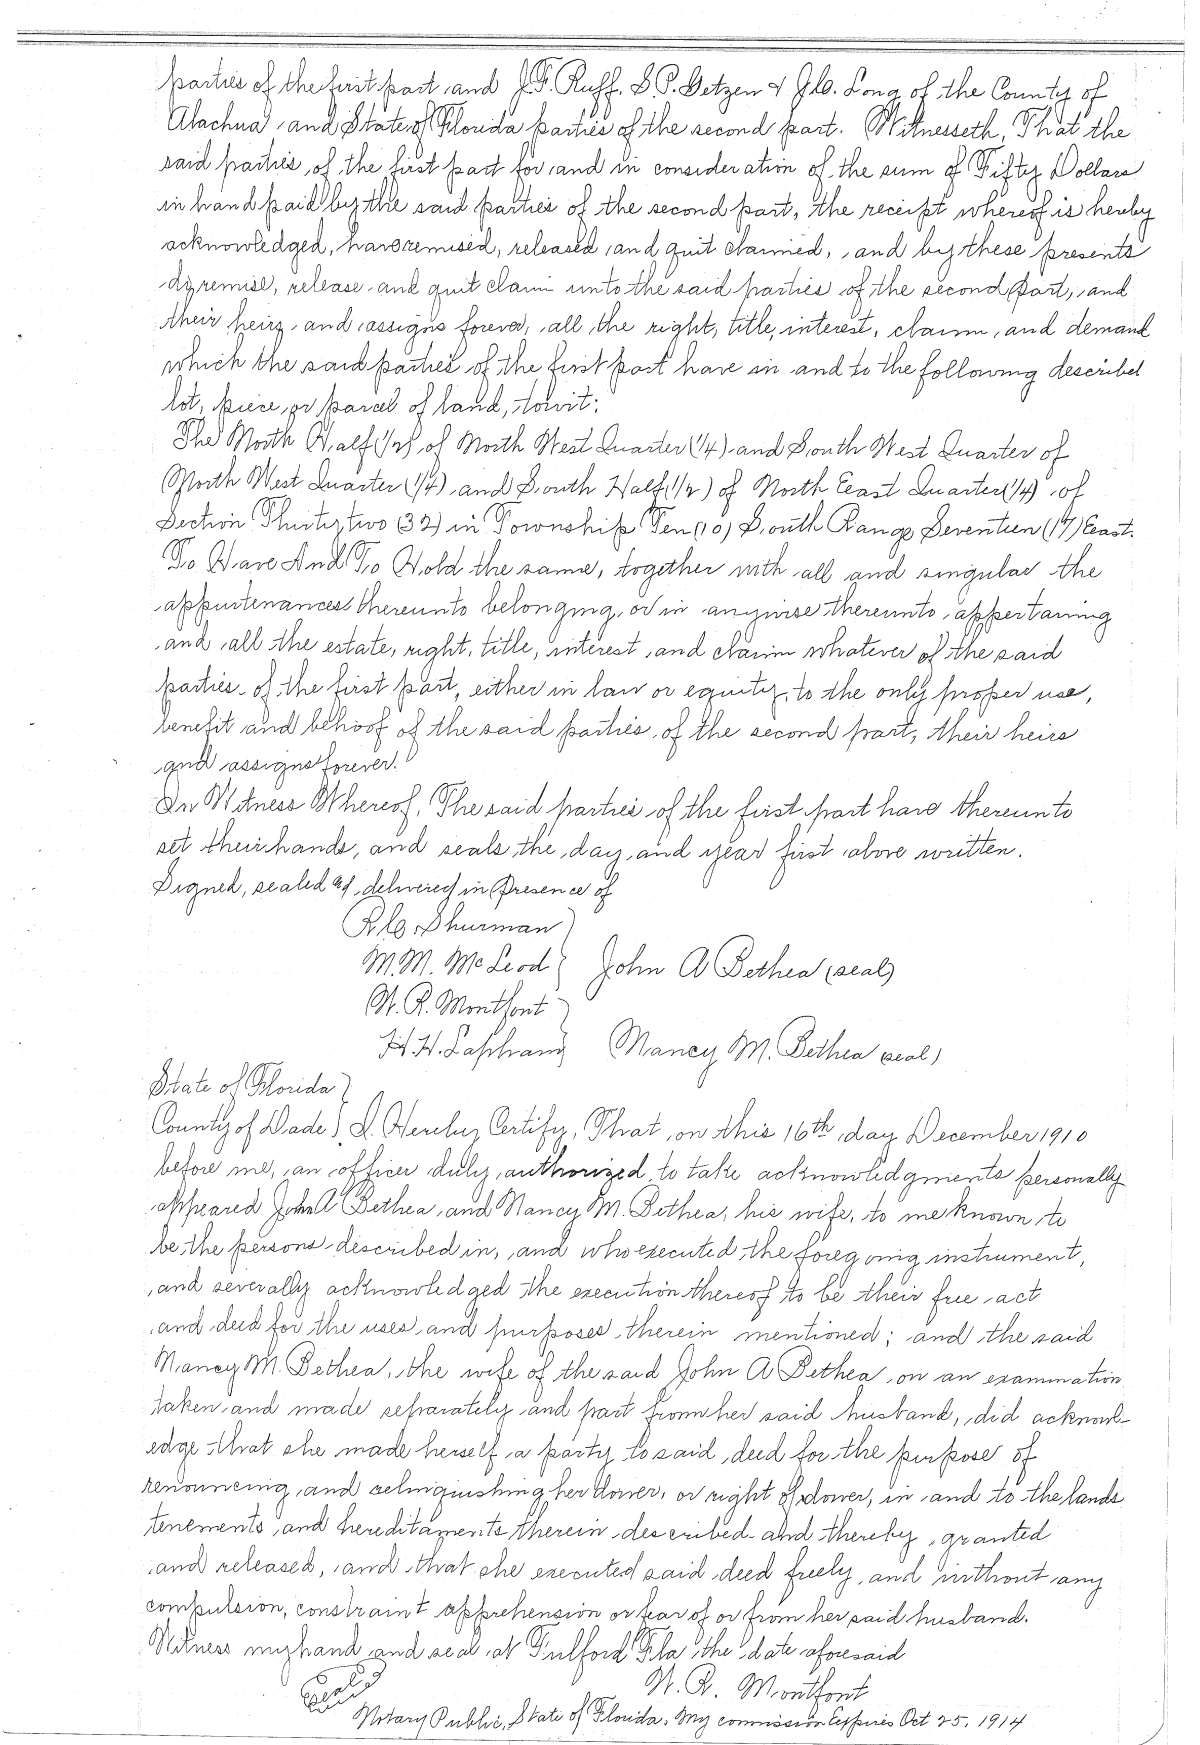 parties of the first part and J.F. Ruff. S.P. Getzen & J.C. Long of the County of
Alachua and State of Florida parties of the second part. Witnesseth, That the
said parties of the first part for and in consideration of the sum of Fifty Dollars
in hand paid by the said parties of the second part, the receipt whereof is hereby
acknowledged, have remised, released and quit claimed, and by these presents
do remise, release and quit claim unto the said parties of the second part, and
their heirs and assigns forever, all the right, title, interest, claim and demand
which the said parties of the first part have in and to the following described
lot, piece, or parcel of land, towit:
The North Half (1/2) of North West Quarter (1/4) and South West Quarter of
North West Quarter (1/4) and South Half (1/2) of North East Quarter (1/4) of
Section Thirty two (32) in Township Ten (10) South Range Seventeen (17) East.
To Have And To Hold the same, together with all and singular the
appurtenances thereunto belonging, or in anywise thereunto appertaining
and all the estate, right, title, interest and claim whatever of the said
parties of the first part, either in law or equity, to the only proper use,
benefit and behoof of the said parties of the second part, their heirs
and assigns forever.
In Witness Whereof, The said parties of the first part have thereunto
set their hands, and seals the day and year first above written.
Signed, sealed and delivered in Presence of
R.C. Shurman }
M.M. McLeod } John A Bethea (seal)
W. R. Montfont }
H. H. Lapham } Nancy M. Bethea (seal)
State of Florida }
County of Dade } I Hereby Certify, That on this 16th day December 1910
before me, an officer duly authorized to take acknowledgments personally
appeared John A Bethea, and Nancy M. Bethea, his wife, to me known to
be the persons described in, and who executed the foregoing instrument,
and severally acknowledged the execution thereof to be their free act
and deed for the uses and purposes therein mentioned; and the said
Nancy M. Bethea, the wife of the said John A Bethea, on an examination
taken and made separately and part from her said husband, did acknowl-
edge that she made herself a party to said deed for the purpose of
renouncing and relinquishing her dower, or right of dower, in and to the lands
tenements and hereditaments therein described and thereby granted
and released, and that she executed said deed freely and without any
compulsion, constraint apprehension or fear of or from her said husband.
Witness my hand and seal at Fulford Fla the date aforesaid
Seal W. R. Montfont
Notary Public, State of Florida. My commission Expires Oct 25, 1914